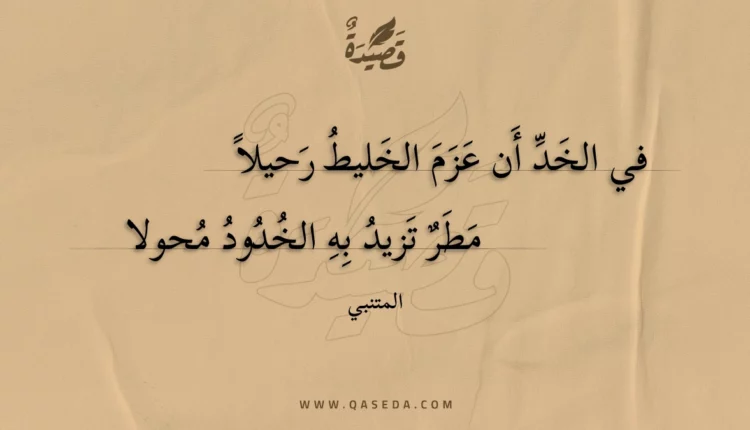 قَصِيدَةٌ
في الخَدِّ أَن عَزَمَ الخَليطُ رَحيلاً
مَطَرٌ تَزيدُ بِهِ الخُدُودُ مُحولا
المتنبي
WWW.QASEDA.COM